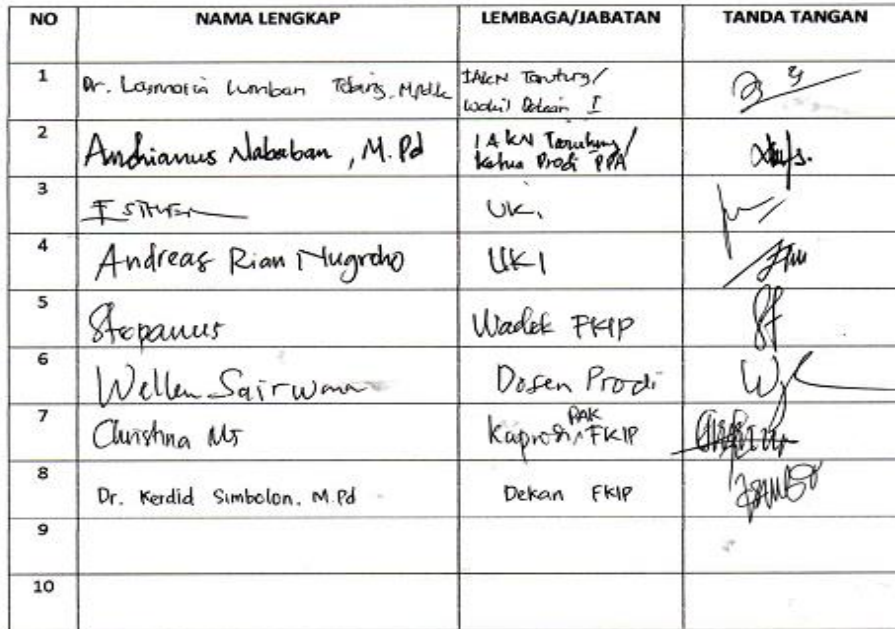 NO NAMA LENGKAP LEMBAGA/JABATAN TANDA TANGAN
1 Dr. Lasmaria Lumban Tobing, M.Pd.K IAKN Tarutung/
Wakil Dekan I
2 Andrianus Nababan, M.Pd IAKN Tarutung/
Ketua Prodi PPA
3 UKI
4 Andreas Rian Nugroho UKI
5 Stepanus Wadek FKIP
6 Wellem Sairwona Dosen Prodi
7 Christina Ms Kaprodi PAK FKIP
8 Dr. Kerdid Simbolon, M.Pd Dekan FKIP
9
10